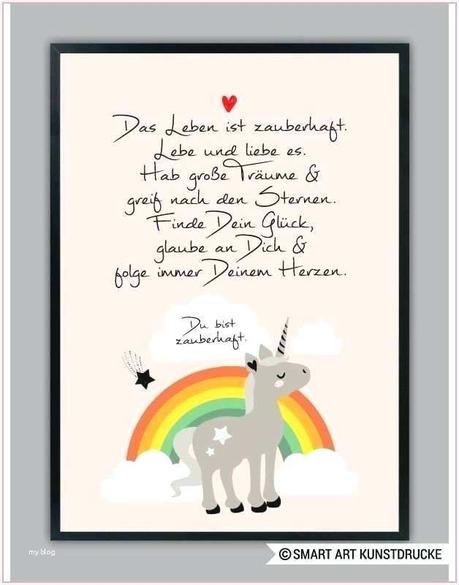 Das Leben ist zauberhaft.
Lebe und liebe es.
Hab große Träume &
greif nach den Sternen.
Finde Dein Glück,
glaube an Dich &
folge immer Deinem Herzen.
Du bist
zauberhaft.
my blog
©SMART ART KUNSTDRUCKE